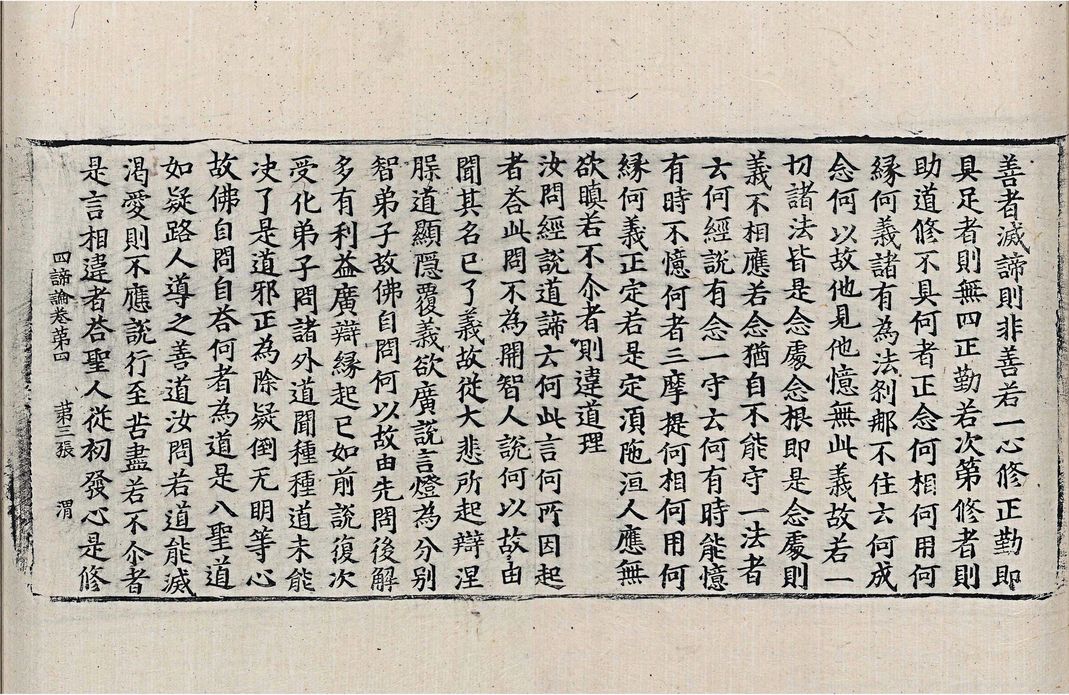 善者滅諦則非善若一心修正勤即
具足者則無四正勤若次第修者則
助道修不具何者正念何相何用何
縁何義諸有為法剎那不住云何成
念何以故他見他憶無此義故若一
切諸法皆是念處念根即是念處則
義不相應若念猶自不能守一法者
云何經說有念一守云何有時能憶
有時不憶何者三摩提何相何用何
縁何義正定若是定湏陁洹人應無
欲瞋若不尒者則違道理
汝問經說道諦云何此言何所因起
者荅此問不為開智人說何以故由
聞其名已了義故從大悲所起辯涅
槃道顯隱覆義欲廣說言燈為分別
智弟子故佛自問何以故由先問後解
多有利益廣辯縁起已如前說復次
受化弟子問諸外道聞種種道未能
决了是道邪正為除疑倒无明等心
故佛自問自荅何者為道是八聖道
如疑路人導之善道汝問若道能滅
渇愛則不應說行至苦盡若不尒者
是言相違者荅聖人從初發心是修
四諦論卷第四 第三張 渭